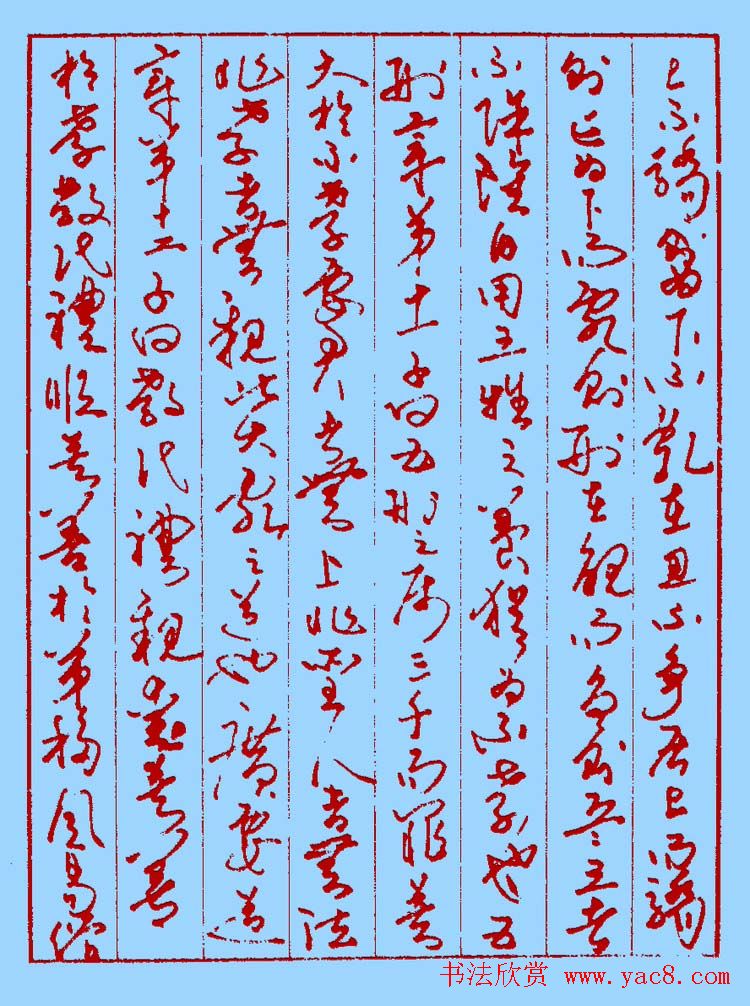 上不驕為下不亂在丑不爭居上而驕
則亡為下而亂則刑在醜而爭則兵三者
不除雖日用三牲之養猶為不孝也五
刑章第十一子曰五刑之屬三千而罪莫
大於不孝要君者無上非聖人者無法
非孝者無親此大亂之道也廣要道
章第十二子曰教民禮親愛莫善
於孝教民禮順莫善於弟移風易俗
书法欣赏 www.yac8.com